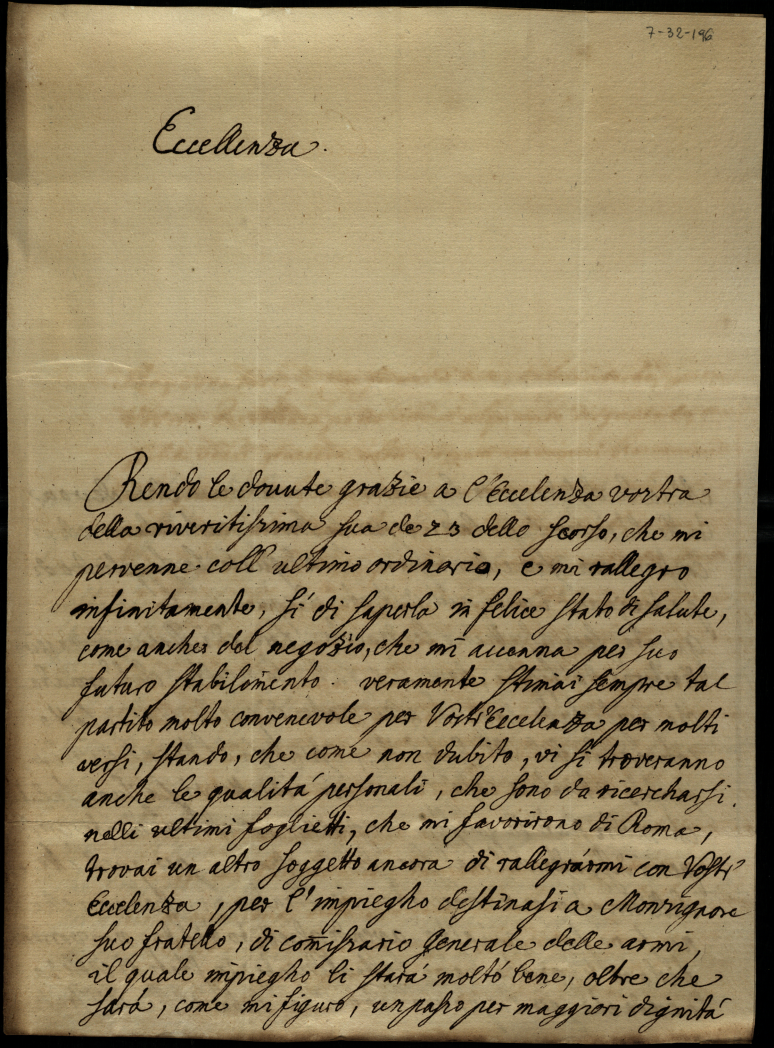 7-32-196
Eccellenza.
Rendo le dovute grazie a l'Eccelenza vostra
della riveritissima sua de 23 dello scorso, che mi
pervenne coll ultimo ordinario, e mi rallegro
infinitamente, sí di saperla in felice stato di salute,
come anche del negozio, che mi accenna per suo
futuro stabilimento. veramente stimai sempre tal
partito molto convenevole per Vostr'Eccelenza per molti
versi, stando, che come non dubito, vi si troveranno
anche le qualitá personali, che sono da ricercharsi.
nelli ultimi foglietti, che mi favorirono di Roma,
trovai un altro soggetto ancora di rallegrarmi con Vostr'
Eccelenza, per l'impiegho destinasi a Monsignore
suo fratello, di comissario Generale delle armi,
il quale impiegho li stará moltó bene, oltre che
sará, come mi figuro, un passo per maggiori dignitá